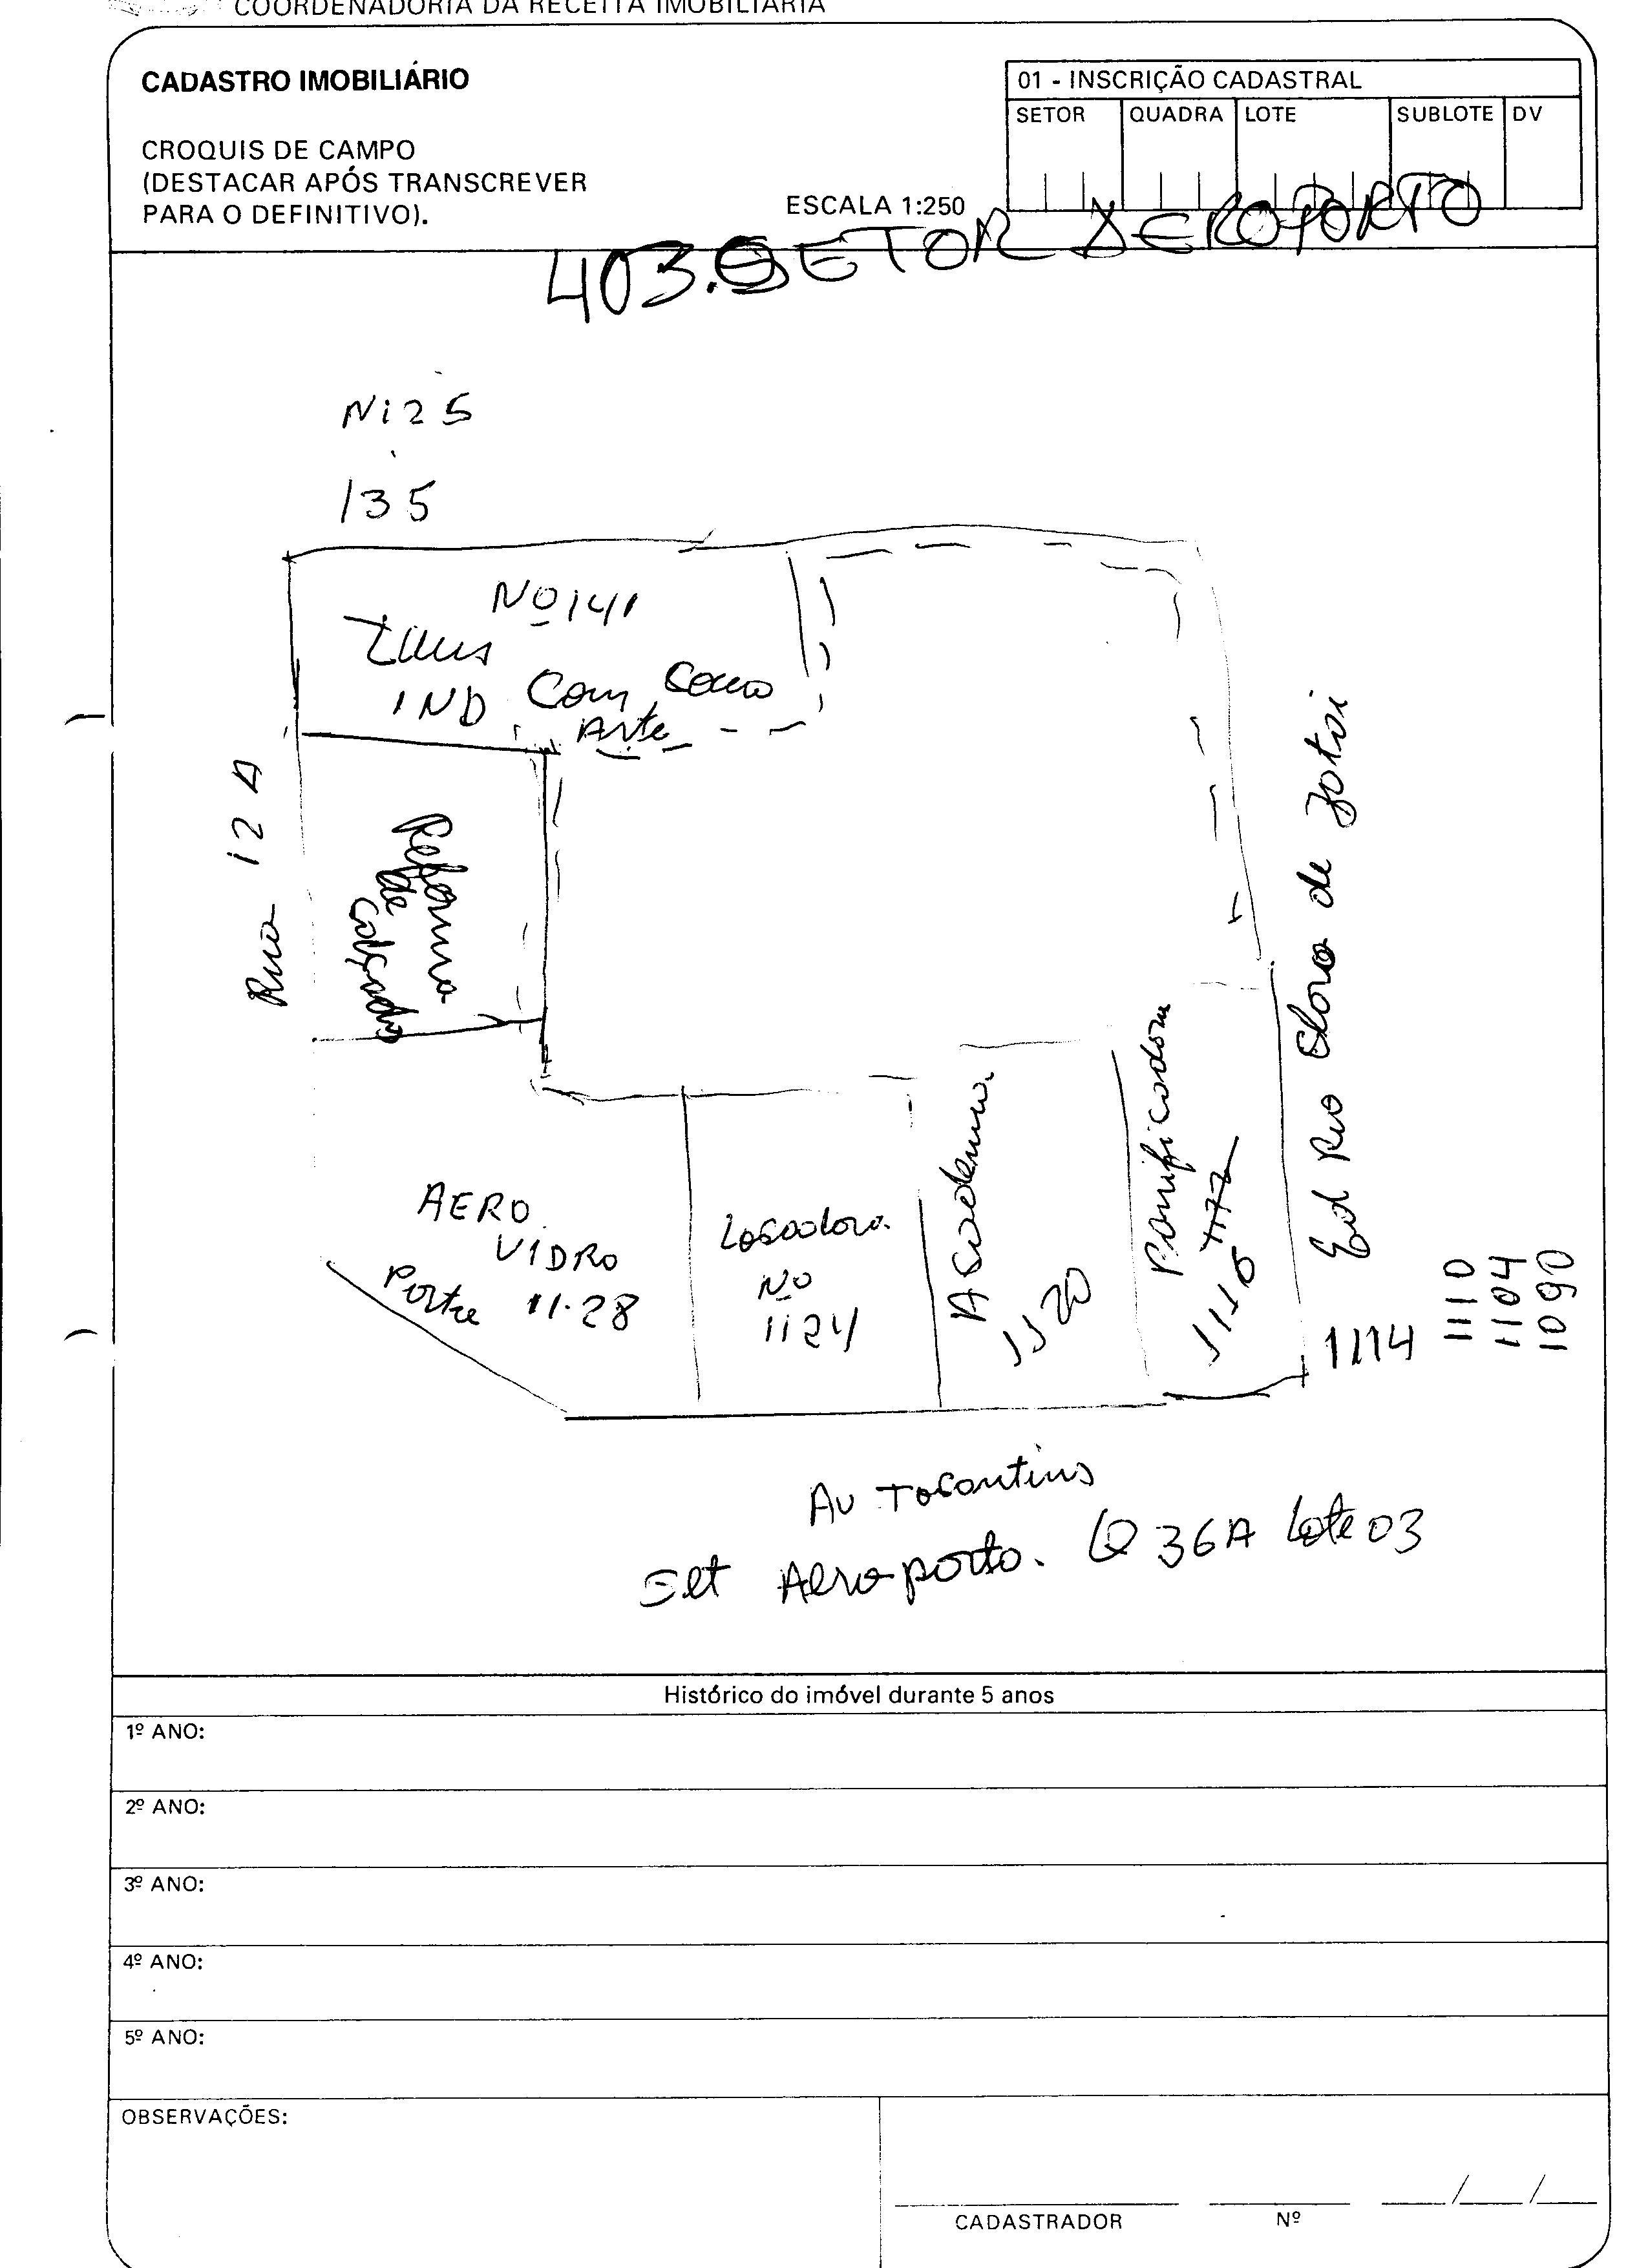 COORDENADORIA DA RECEITA IMOBILIÁRIA
CADASTRO IMOBILIÁRIO
CROQUIS DE CAMPO
(DESTACAR APÓS TRANSCREVER
PARA O DEFINITIVO).
ESCALA 1:250
01 - INSCRIÇÃO CADASTRAL
SETOR QUADRA LOTE SUBLOTE DV
403. SETOR AEROPORTO
Ni25
135
Nº 141
IND Com
Arte
Rua 12 A
Reforma
de
Calçados
AERO
VIDRO
Porta 11.28
Locadora
Nº
1124
Academia
1120
Panificadora
1116
Ed Rio Claro de
1114
1110
1104
1090
Av Tocantins
Set Aeroporto. Q 36A Lote 03
Histórico do imóvel durante 5 anos
1º ANO:
2º ANO:
3º ANO:
4º ANO:
5º ANO:
OBSERVAÇÕES:
CADASTRADOR
Nº